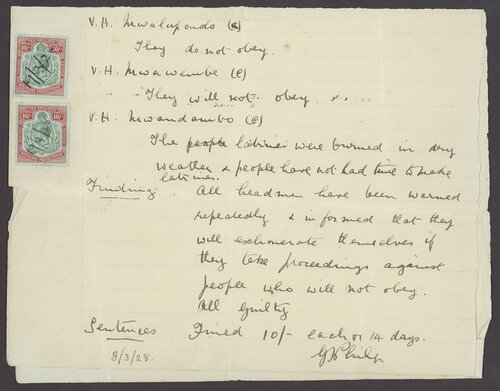 V.H. Mwalupondo (E)
They do not obey.
V.H. Mwawembe (E)
They will not obey.
V.H. Mwandambo (E)
The people latrines were burned in dry
weather & people have not had time to make
latrines.
Finding. All headmen have been warned
repeatedly & informed that they
will exhonerate themselves if
they take proceedings against
people who will not obey.
All guilty
Sentences Fined 10/- each or 14 days.
8/3/28.
TEN SHILLINGS
10/-
10/-
TEN SHILLINGS
10/-
10/-